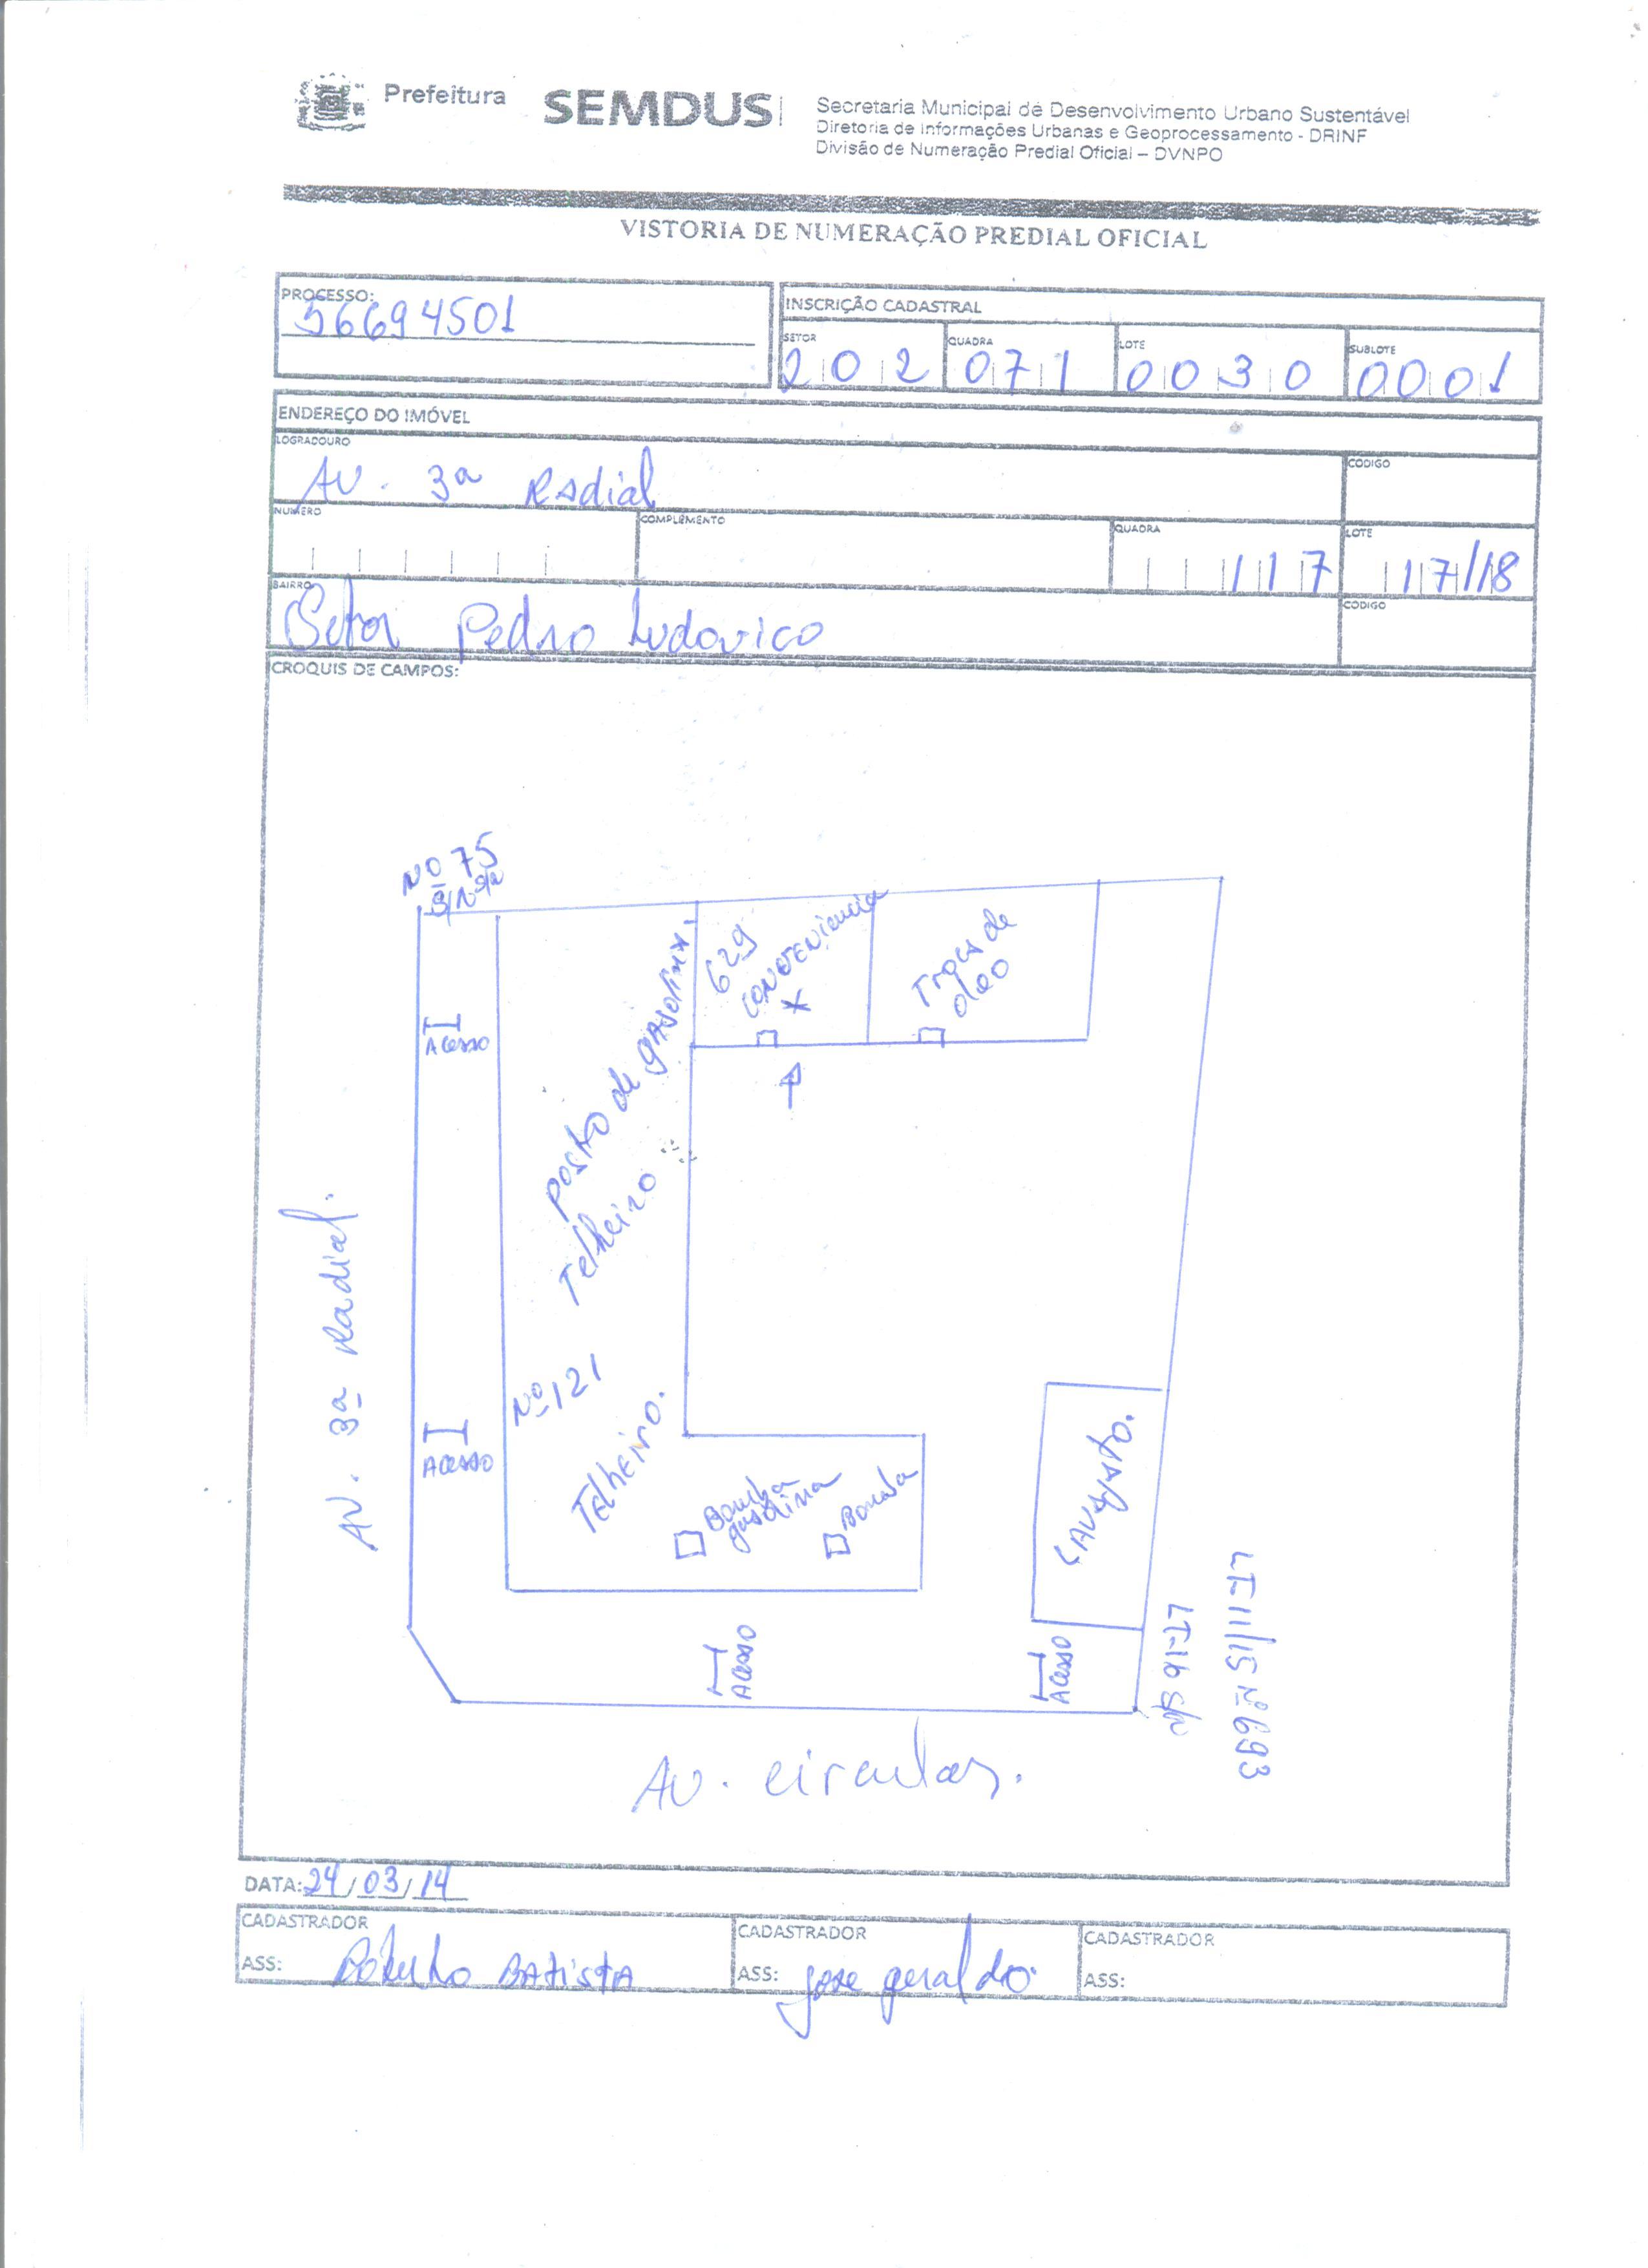 Prefeitura
SEMDUS
Secretaria Municipal de Desenvolvimento Urbano Sustentável
Diretoria de Informações Urbanas e Geoprocessamento - DRINF
Divisão de Numeração Predial Oficial – DVNPO
VISTORIA DE NUMERAÇÃO PREDIAL OFICIAL
PROCESSO:
56694501
INSCRIÇÃO CADASTRAL
SETOR QUADRA LOTE SUBLOTE
202 071 0030 0001
ENDEREÇO DO IMÓVEL
LOGRADOURO CÓDIGO
AV. 3ª Radial
NUMERO COMPLEMENTO QUADRA LOTE
117 17/18
BAIRRO CODIGO
Setor Pedro Ludovico
CROQUIS DE CAMPOS:
Nº 75
S/Nº
629
conveniencia
X
Troca de
oleo
Acesso
posto de gasolina.
Telheiro
AV. 3ª Radial.
Nº 121
Telheiro.
Acesso
Bomba
gasolina
Bomba
Lavajato.
Acesso
Acesso
LT-16 S/N
LT-11/15 Nº 693
AV. circular.
DATA: 24/03/14
CADASTRADOR
ASS: Batista
CADASTRADOR
ASS: jose geraldo
CADASTRADOR
ASS: